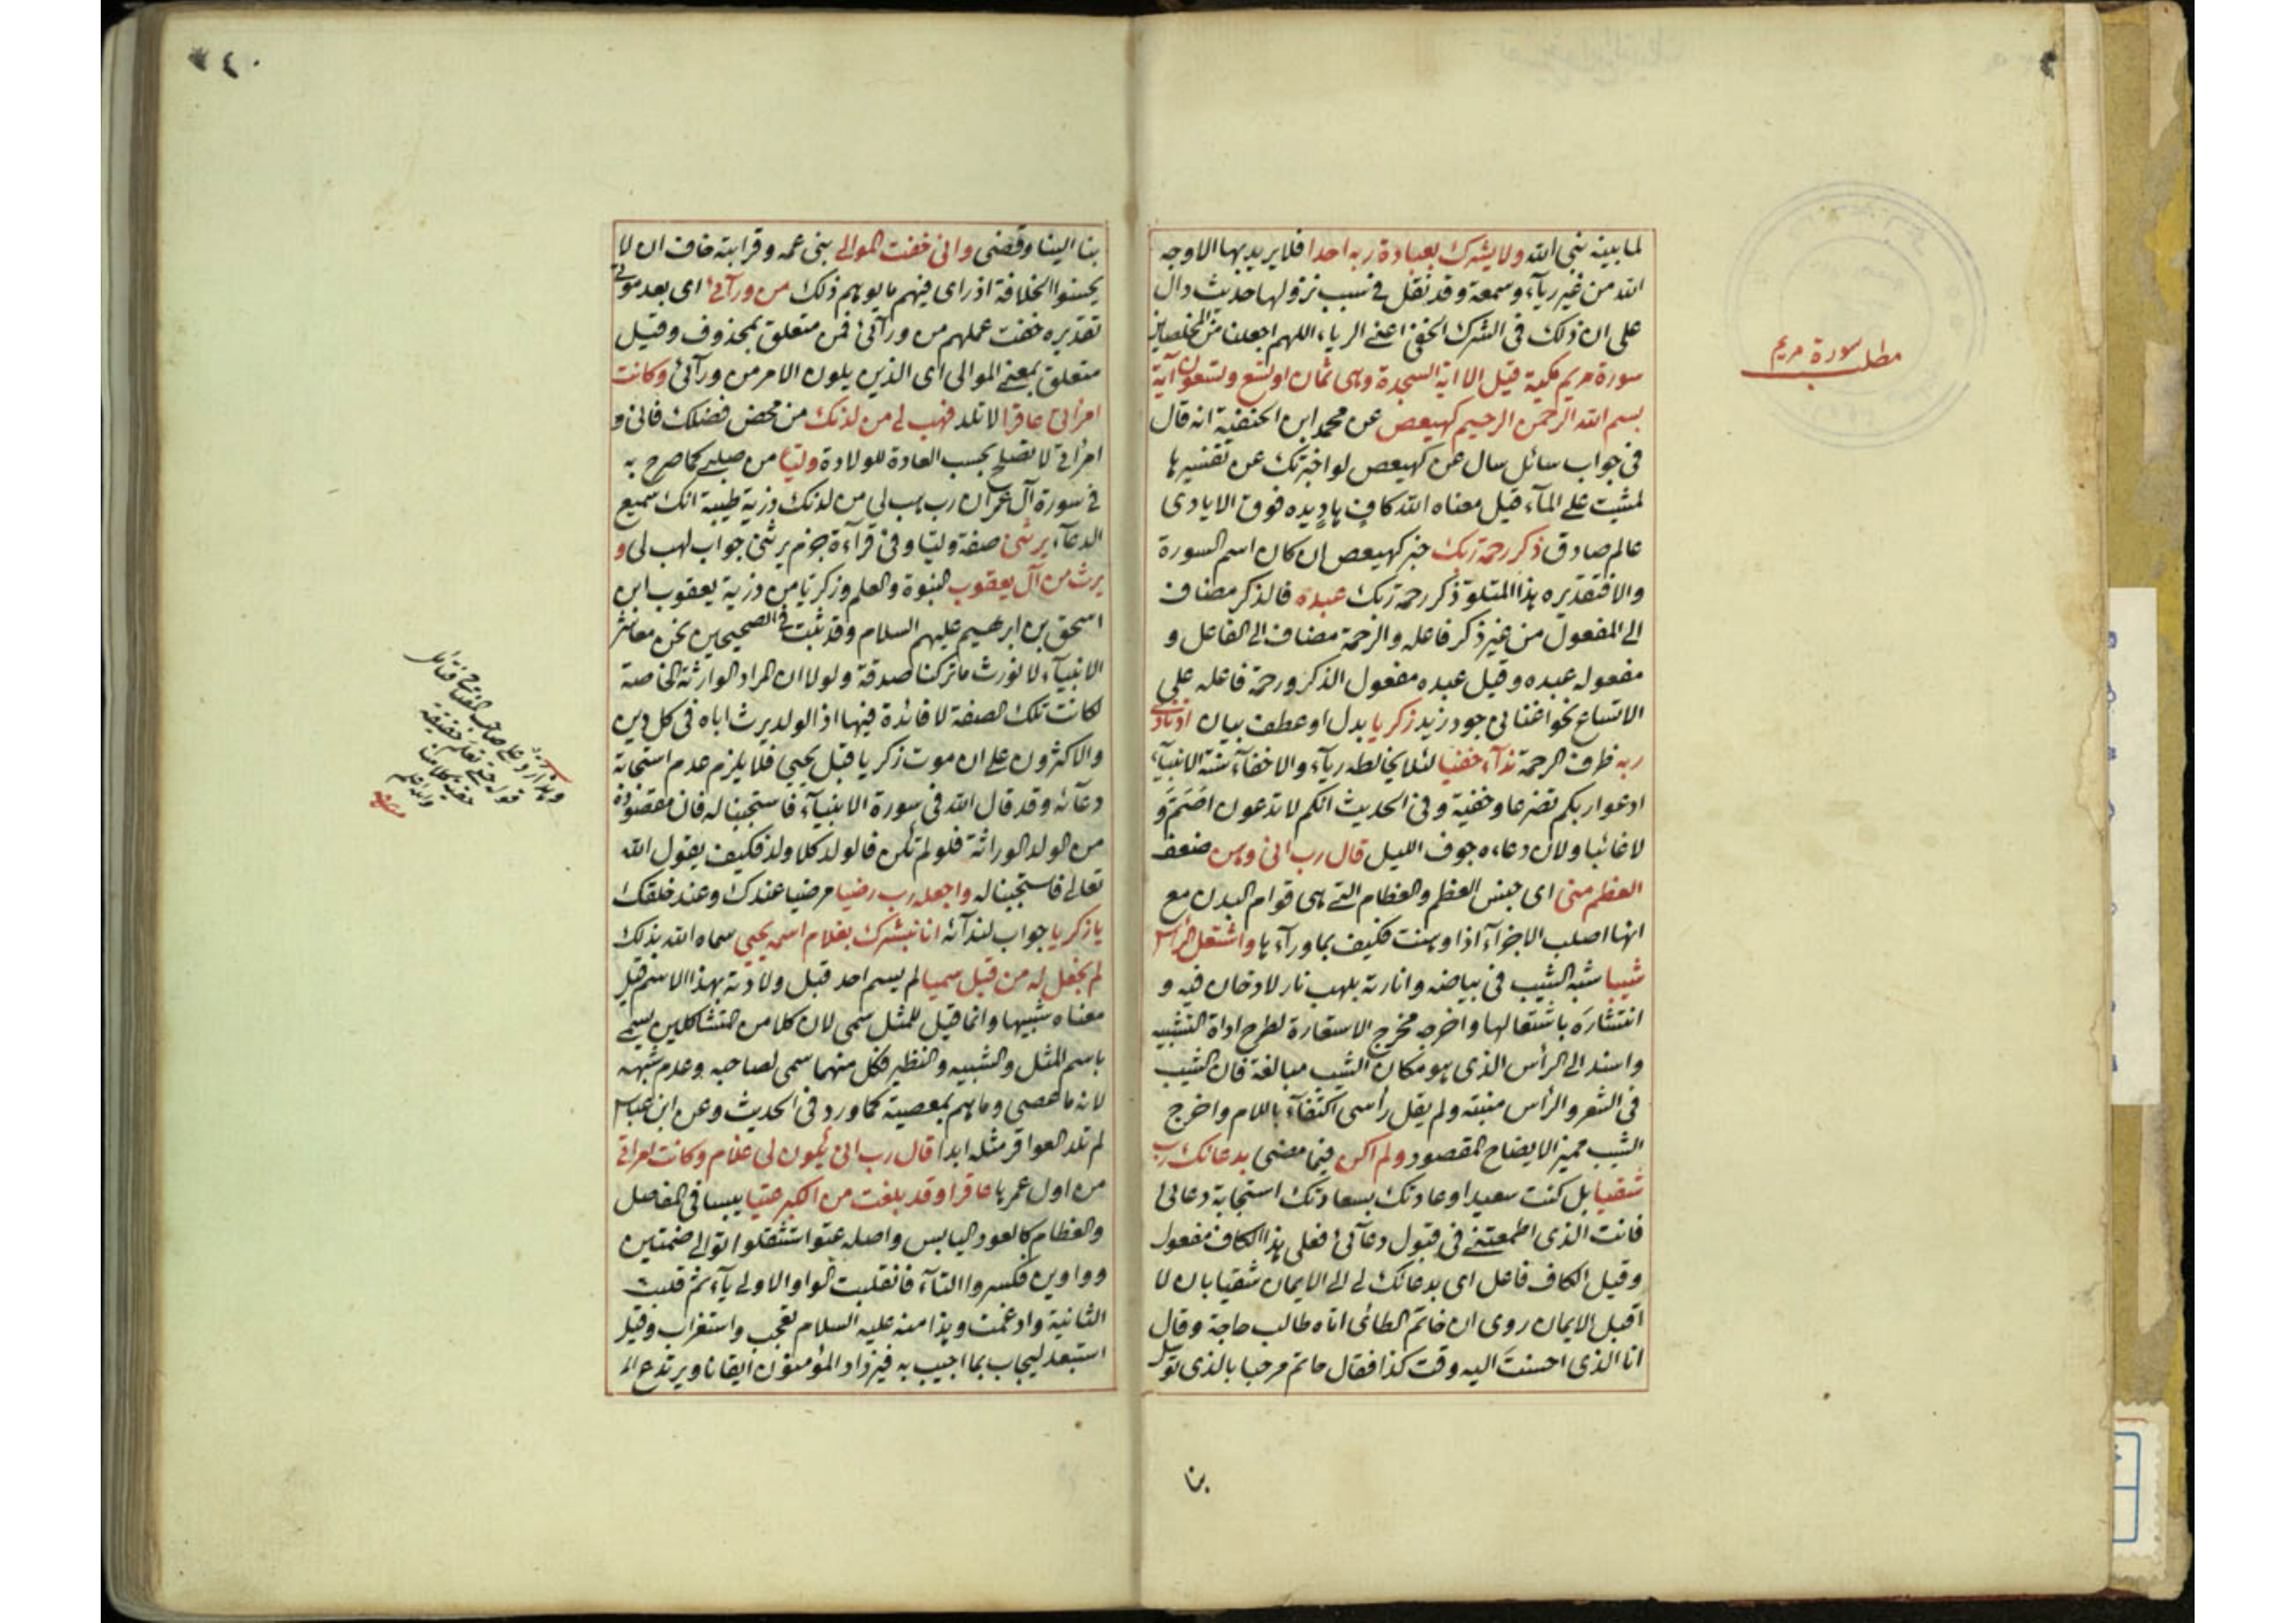 لما بينه نبى الله ولا يشرك بعبادة ربه احدا فلا يريد بها الا وجه
الله من غير رياء وسمعة وقد نقل فى سبب نزولها حديث دال
على ان ذلك فى الشرك الخفى اعنى الرياء اللهم اجعلنا من المخلصين
سورة مريم مكية قيل الا اية السجدة وهى ثمان او تسع وتسعون آية
بسم الله الرحمن الرحيم كهيعص عن محمد ابن الحنفية انه قال
فى جواب سائل سال عن كهيعص لو اخبرتك عن تفسيرها
لمشيت على المآء قيل معناه الله كاف هاد يده فوق الايادى
عالم صادق ذكر رحمة ربك خبر كهيعص ان كان اسم السورة
والا فتقديره هذا المتلو ذكر رحمة ربك عبده فالذكر مضاف
الى المفعول من غير ذكر فاعله والرحمة مضاف الى الفاعل و
مفعوله عبده وقيل عبده مفعول الذكر ورحمة فاعله على
الاتساع نحو اغنانى جود زيد زكريا بدل او عطف بيان اذ نادى
ربه ظرف الرحمة ندآء خفيا لئلا يخالطه ريآء والاخفآء سنة الانبيآء
ادعوا ربكم تضرعا وخفية وفى الحديث انكم لا تدعون اصم و
لا غائبا ولان دعاءه جوف الليل قال رب انى وهن ضعف
العظم منى اى جنس العظم والعظام التى هى قوام البدن مع
انها اصلب الاجزآء اذا وهنت فكيف بما ورآءها واشتعل الرأس
شيبا شبه الشيب فى بياضه وانارته بلهب نار لا دخان فيه و
انتشاره باشتعالها واخرجه مخرج الاستعارة لطرح اداة التشبيه
واسند الى الرأس الذى هو مكان الشيب مبالغة فان الشيب
فى الشعر والرأس منبته ولم يقل رأسى اكتفآء باللام واخرج
الشيب مميزا لايضاح المقصود ولم اكن فيما مضى بدعائك رب
شقيا بل كنت سعيدا وعادتك بسعادتك استجابة دعائى
فانت الذى اطمعتنى فى قبول دعآئى فعلى هذا الكاف مفعول
وقيل الكاف فاعل اى بدعائك لى الى الايمان شقيا بان لا
اقبل الايمان روى ان خاتم الطائى اتاه طالب حاجة وقال
انا الذى احسنت اليه وقت كذا فقال حاتم مرحبا بالذى توسل
بنا
مطلب سورة مريم
بنا الينا وقضى وانى خفت الموالى بنى عمه وقرابته خاف ان لا
يحسنوا الخلافة اذ راى فيهم ما يوهم ذلك من ورآئى اى بعد موتى
تقديره خفت عملهم من ورآئى فمن متعلق بمحذوف وقيل
متعلق بمعنى الموالى اى الذين يلون الامر من ورآئى وكانت
امرأتى عاقرا لا تلد فهب لى من لدنك من محض فضلك فانى و
امرأتى لا تصلح بحسب العادة للولادة وليا من صلبى كما صرح به
فى سورة آل عمران رب هب لى من لدنك ذرية طيبة انك سميع
الدعآء يرثنى صفة وليا وفى قرآءة جزم يرثنى جواب لهب لى و
يرث من آل يعقوب النبوة والعلم وزكريا من ذرية يعقوب ابن
اسحق بن ابرهيم عليهم السلام وقد ثبت فى الصحيحين نحن معاشر
الانبيآء لا نورث ما تركنا صدقة ولولا ان المراد الوارثة الخاصة
لكانت تلك الصفة لا فائدة فيها اذ الولد يرث اباه فى كل دين
والاكثرون على ان موت زكريا قبل يحيى فلا يلزم عدم استجابة
دعآئه وقد قال الله فى سورة الانبيآء فاستجبنا له فان مقصوده
من الولد الوراثة فلو لم تكن فالولد كلا ولد فكيف يقول الله
تعالى فاستجبنا له واجعله رب رضيا مرضيا عندك وعند خلقك
يا زكريا جواب لندآئه انا نبشرك بغلام اسمه يحيى سماه الله بذلك
لم نجعل له من قبل سميا لم يسم احد قبل ولادته بهذا الاسم قيل
معناه شبيها وانما قيل للمثل سمى لان كلا من المتشاكلين يسمى
باسم المثل والشبيه والنظير فكل منهما سمى لصاحبه وعدم شبهه
لانه ما عصى وما هم بمعصية كما ورد فى الحديث وعن ابن عباس
لم تلد العواقر مثله ابدا قال رب انى يكون لى غلام وكانت امرأتى
من اول عمرها عاقرا وقد بلغت من الكبر عتيا يبسا فى المفاصل
والعظام كالعود اليابس واصله عتو استثقلوا توالى ضمتين
وواوين فكسروا التآء فانقلبت الواو الاولى يآء ثم قلبت
الثانية وادغمت وهذا منه عليه السلام تعجب واستغراب وقيل
استبعد ليجاب بما اجيب به فيزداد المؤمنون ايقانا ويرتدع الم